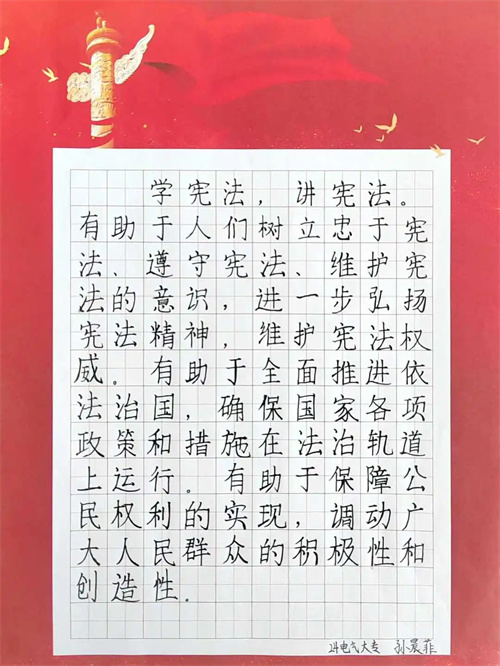 学宪法，讲宪法。
有助于人们树立忠于宪
法、遵守宪法、维护宪
法的意识，进一步弘扬
宪法精神，维护宪法权
威。有助于全面推进依
法治国，确保国家各项
政策和措施在法治轨道
上运行。有助于保障公
民权利的实现，调动广
大人民群众的积极性和
创造性。
24电气大专 孙晨菲